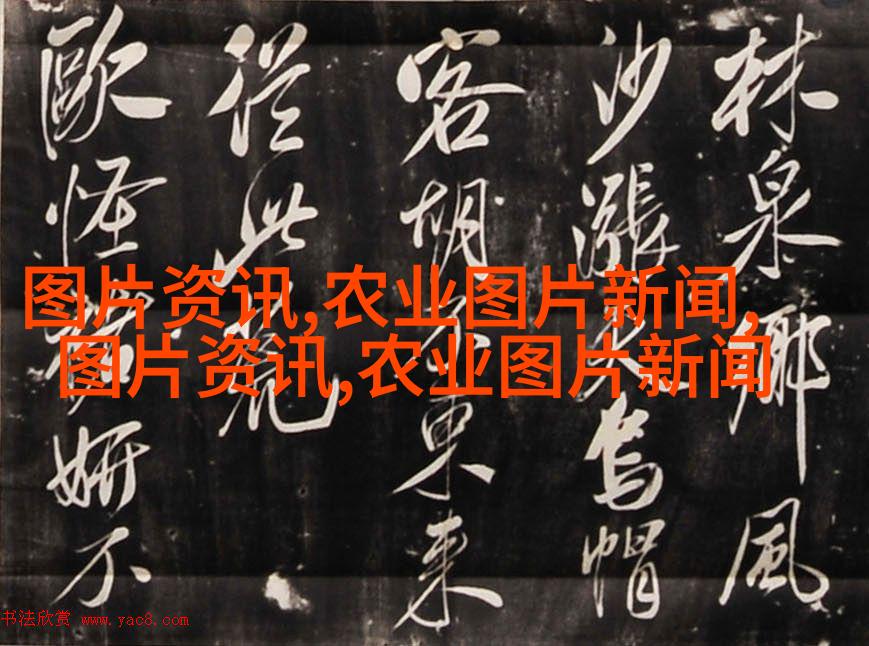 林泉風
沙漲烏帽
客胡東來
從此
歐怪妍不
图片资讯,农业图片新闻,
图片资讯,农业图片新闻
书法欣赏 www.yac8.com